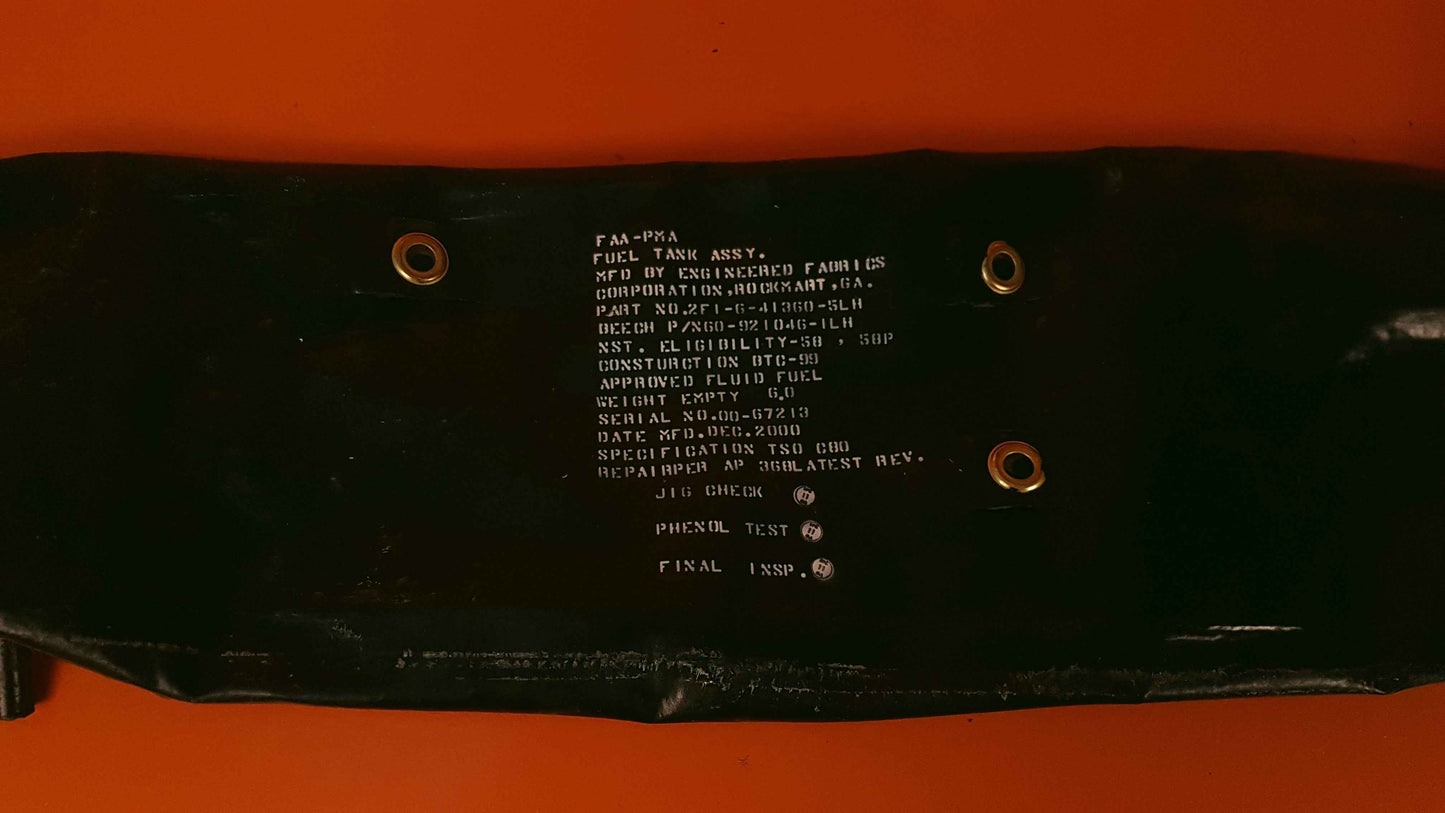 FAA-PMA
FUEL TANK ASSY.
MFD BY ENGINEERED FABRICS
CORPORATION,ROCKMART,GA.
PART NO.2F1-6-41360-5LH
BEECH P/N60-921046-1LH
NST. ELIGIBILITY-58 , 58P
CONSTURCTION BTC-99
APPROVED FLUID FUEL
WEIGHT EMPTY 6.0
SERIAL NO.00-67213
DATE MFD.DEC.2000
SPECIFICATION TSO C80
REPAIRPER AP 368LATEST REV.
JIG CHECK
PHENOL TEST
FINAL INSP.